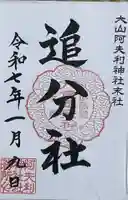 大山阿夫利神社末社
追分社
令和七年一月九日